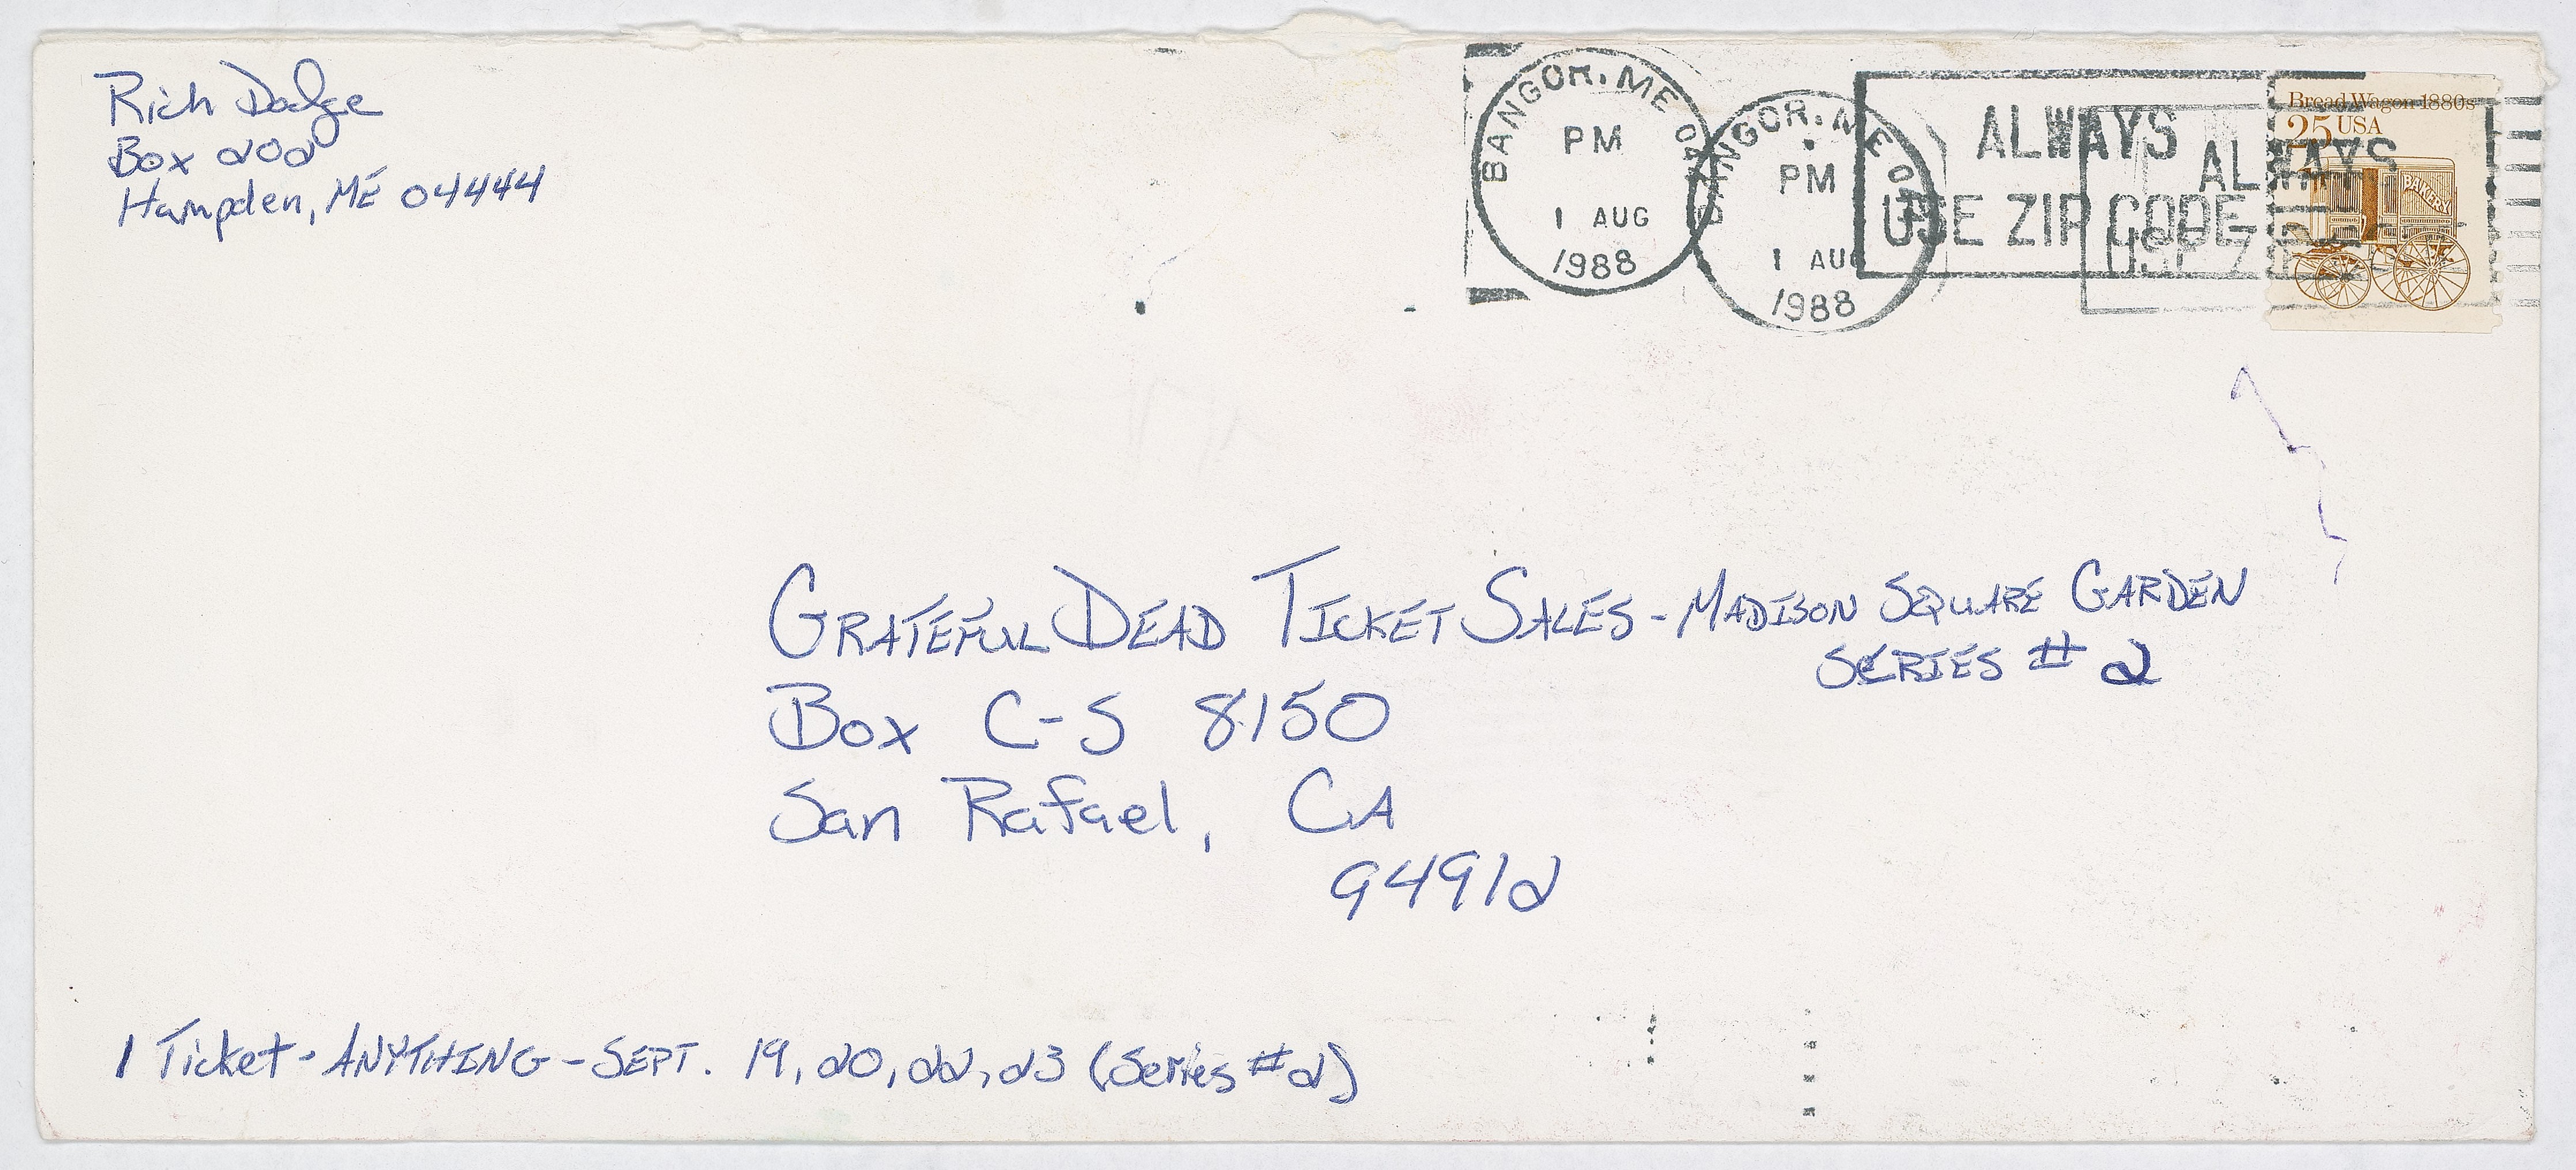 Rich Dodge
Box 202
Hampden, ME 04444
BANGOR, ME
PM
1 AUG
1988
NGOR, ME
PM
1 AUG
1988
ALWAYS
USE ZIP CODE
ALWAYS
USE Z
Bread Wagon 1880s
25 USA
BAKERY
GRATEFUL DEAD TICKET SALES - MADISON SQUARE GARDEN
SERIES # 2
Box C-S 8150
San Rafael, CA
94912
1 Ticket - ANYTHING - SEPT. 19, 20, 22, 23 (Series #2)